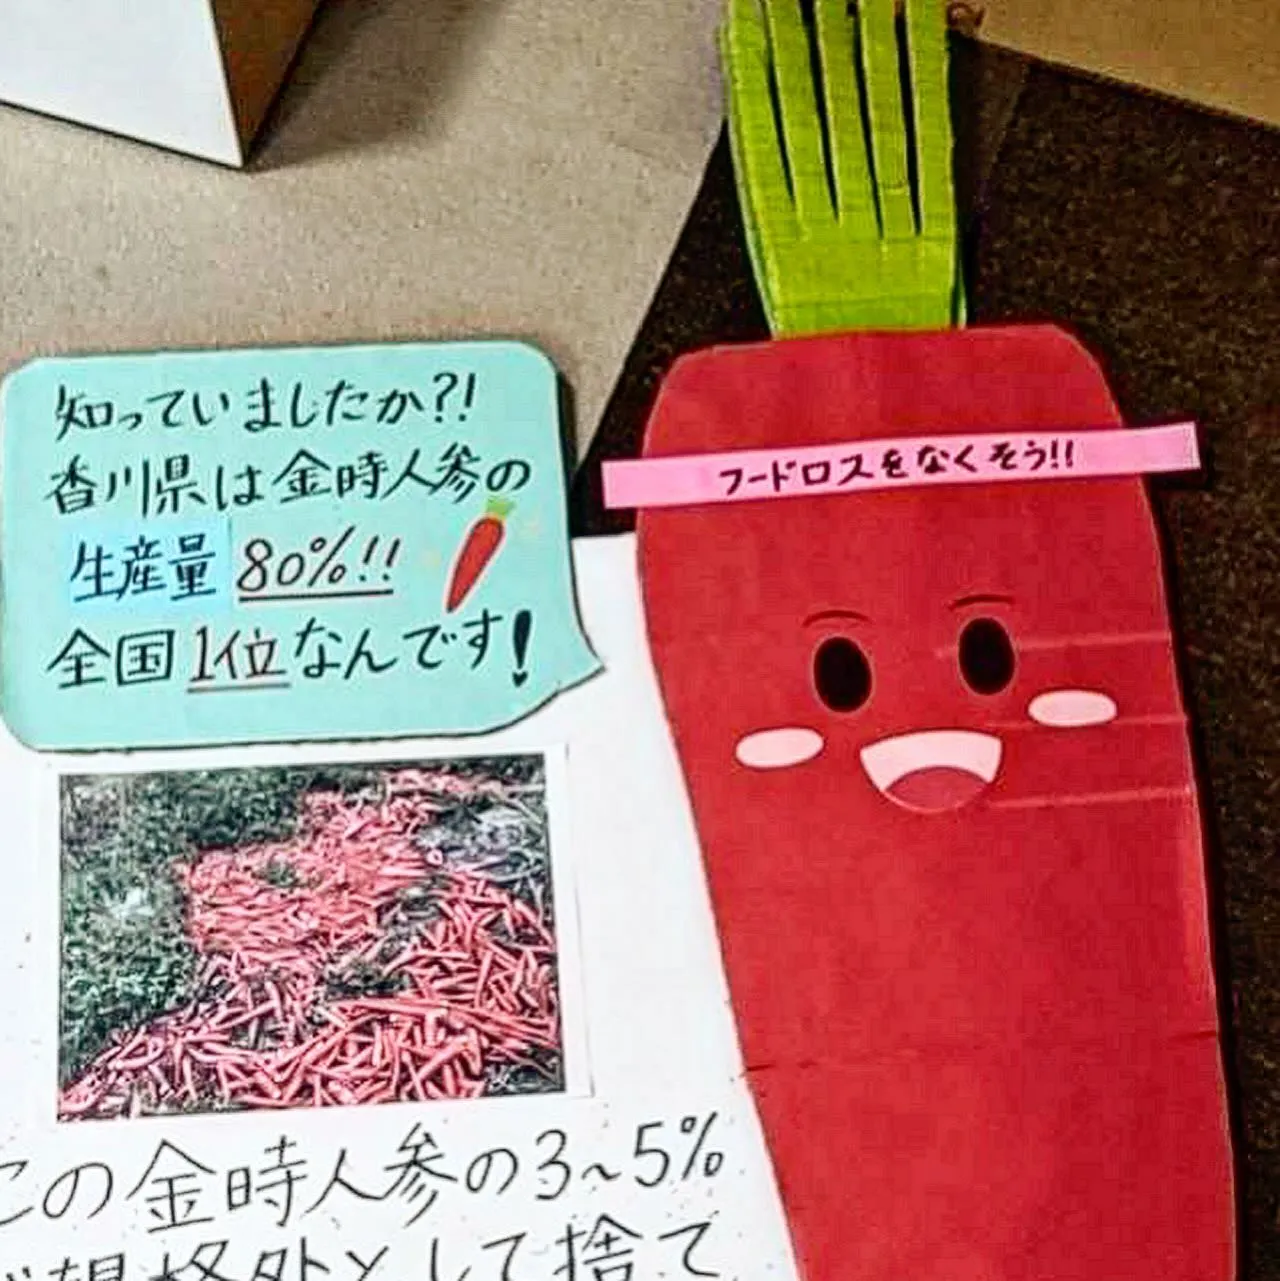 知っていましたか?!
香川県は金時人参の
生産量80%!!
全国1位なんです!
フードロスをなくそう!!
この金時人参の3~5%
が規格外として捨て